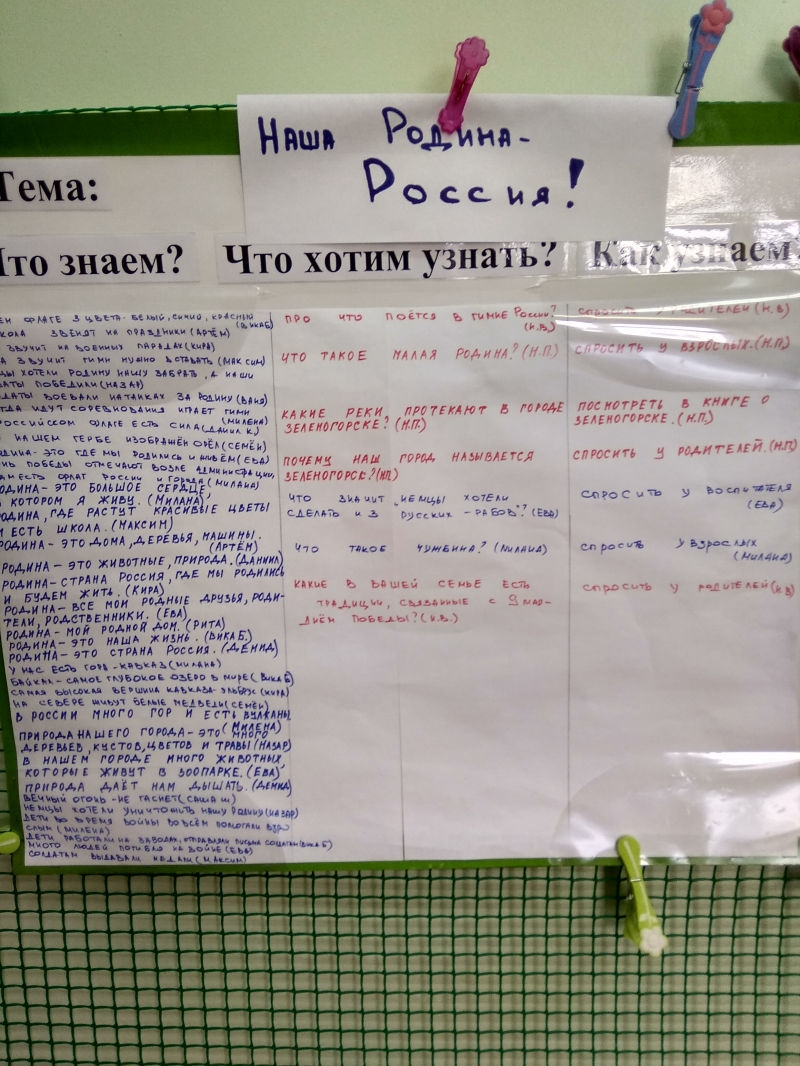 Наша Родина-
Россия!
Тема:
Что знаем?
Что хотим узнать?
Как узнаем
флаге 3 цвета- белый, синий, красный
(Вика Б)
звенят на праздники (Артём)
звучит на военных парадах (Кира)
звучит гимн нужно вставать (Максим)
хотели Родину нашу забрать, а наши
победили (Назар)
воевали на танках за Родину (Ваня)
идут соревнования играет гимн
(Милена)
российском флаге есть сила (Данил К.)
нашем гербе изображён орёл (Семён)
- это где мы родились и живём (Ева)
победы отмечают возле администрации,
есть флаг России и города (Милана)
Родина- это большое сердце,
в котором я живу. (Милана)
Родина, где растут красивые цветы
и есть школа. (Максим)
Родина- это дома, деревья, машины.
(Артём)
Родина- это животные, природа. (Даниил)
Родина- страна Россия, где мы родились
и будем жить. (Кира)
Родина- все мои родные друзья, роди-
тели, родственники. (Ева)
Родина- мой родной дом. (Рита)
Родина- это наша жизнь. (Вика Б.)
Родина- это страна Россия. (Демид)
У нас есть гора - Кавказ (Милана)
Байкал- самое глубокое озеро в мире (Вика Б)
Самая высокая вершина Кавказа- Эльбрус (Кира)
На севере живут белые медведи (Семён)
В России много гор и есть вулканы
(Милена)
Природа нашего города- это много
деревьев, кустов, цветов и травы (Назар)
В нашем городе много животных,
которые живут в зоопарке. (Ева)
Природа даёт нам дышать. (Демид)
Вечный огонь - не гаснет (Саша Ш)
Немцы хотели уничтожить нашу Родину (Назар)
Дети во время войны во всём помогали взро
слым (Милена)
Дети работали на заводах, отправляли письма солдатам (Вика Б)
Много людей погибло на войне (Ева)
Солдатам выдавали медали (Максим)
Про что поётся в гимне России?
(К.В.)
Что такое малая Родина? (Н.П.)
Какие реки протекают в городе
Зеленогорске? (Н.П.)
Почему наш город называется
Зеленогорск? (Н.П.)
Что значит „немцы хотели
сделать из русских - рабов"? (Ева)
Что такое чужбина? (Милана)
Какие в вашей семье есть
традиции, связанные с 9 мая-
днём Победы? (К.В.)
Спросить у родителей (К.В)
Спросить у взрослых. (Н.П)
Посмотреть в книге о
Зеленогорске. (Н.П.)
Спросить у родителей. (Н.П)
Спросить у воспитателя
(Ева)
Спросить у взрослых
(Милана)
Спросить у родителей (К.В)